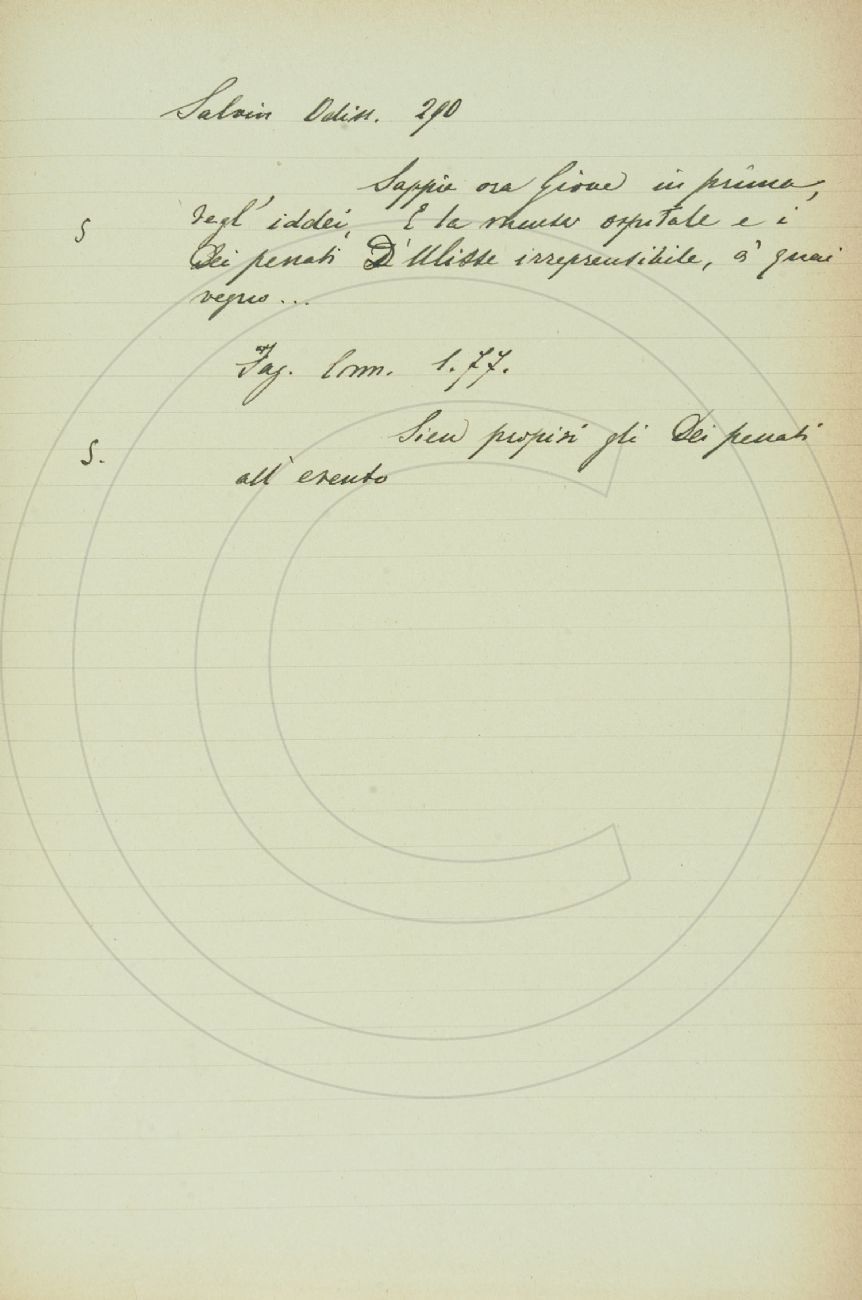 Salvin Odiss. 290
Sappia ora Giove in prima,
degl' iddei, E la mensa ospitale e i
§
Dei penati D'Ulisse irreprensibile, a' quai
vegno...
Fag. Comm. 1.77.
Sien propizi gli Dei penati
§.
all' evento